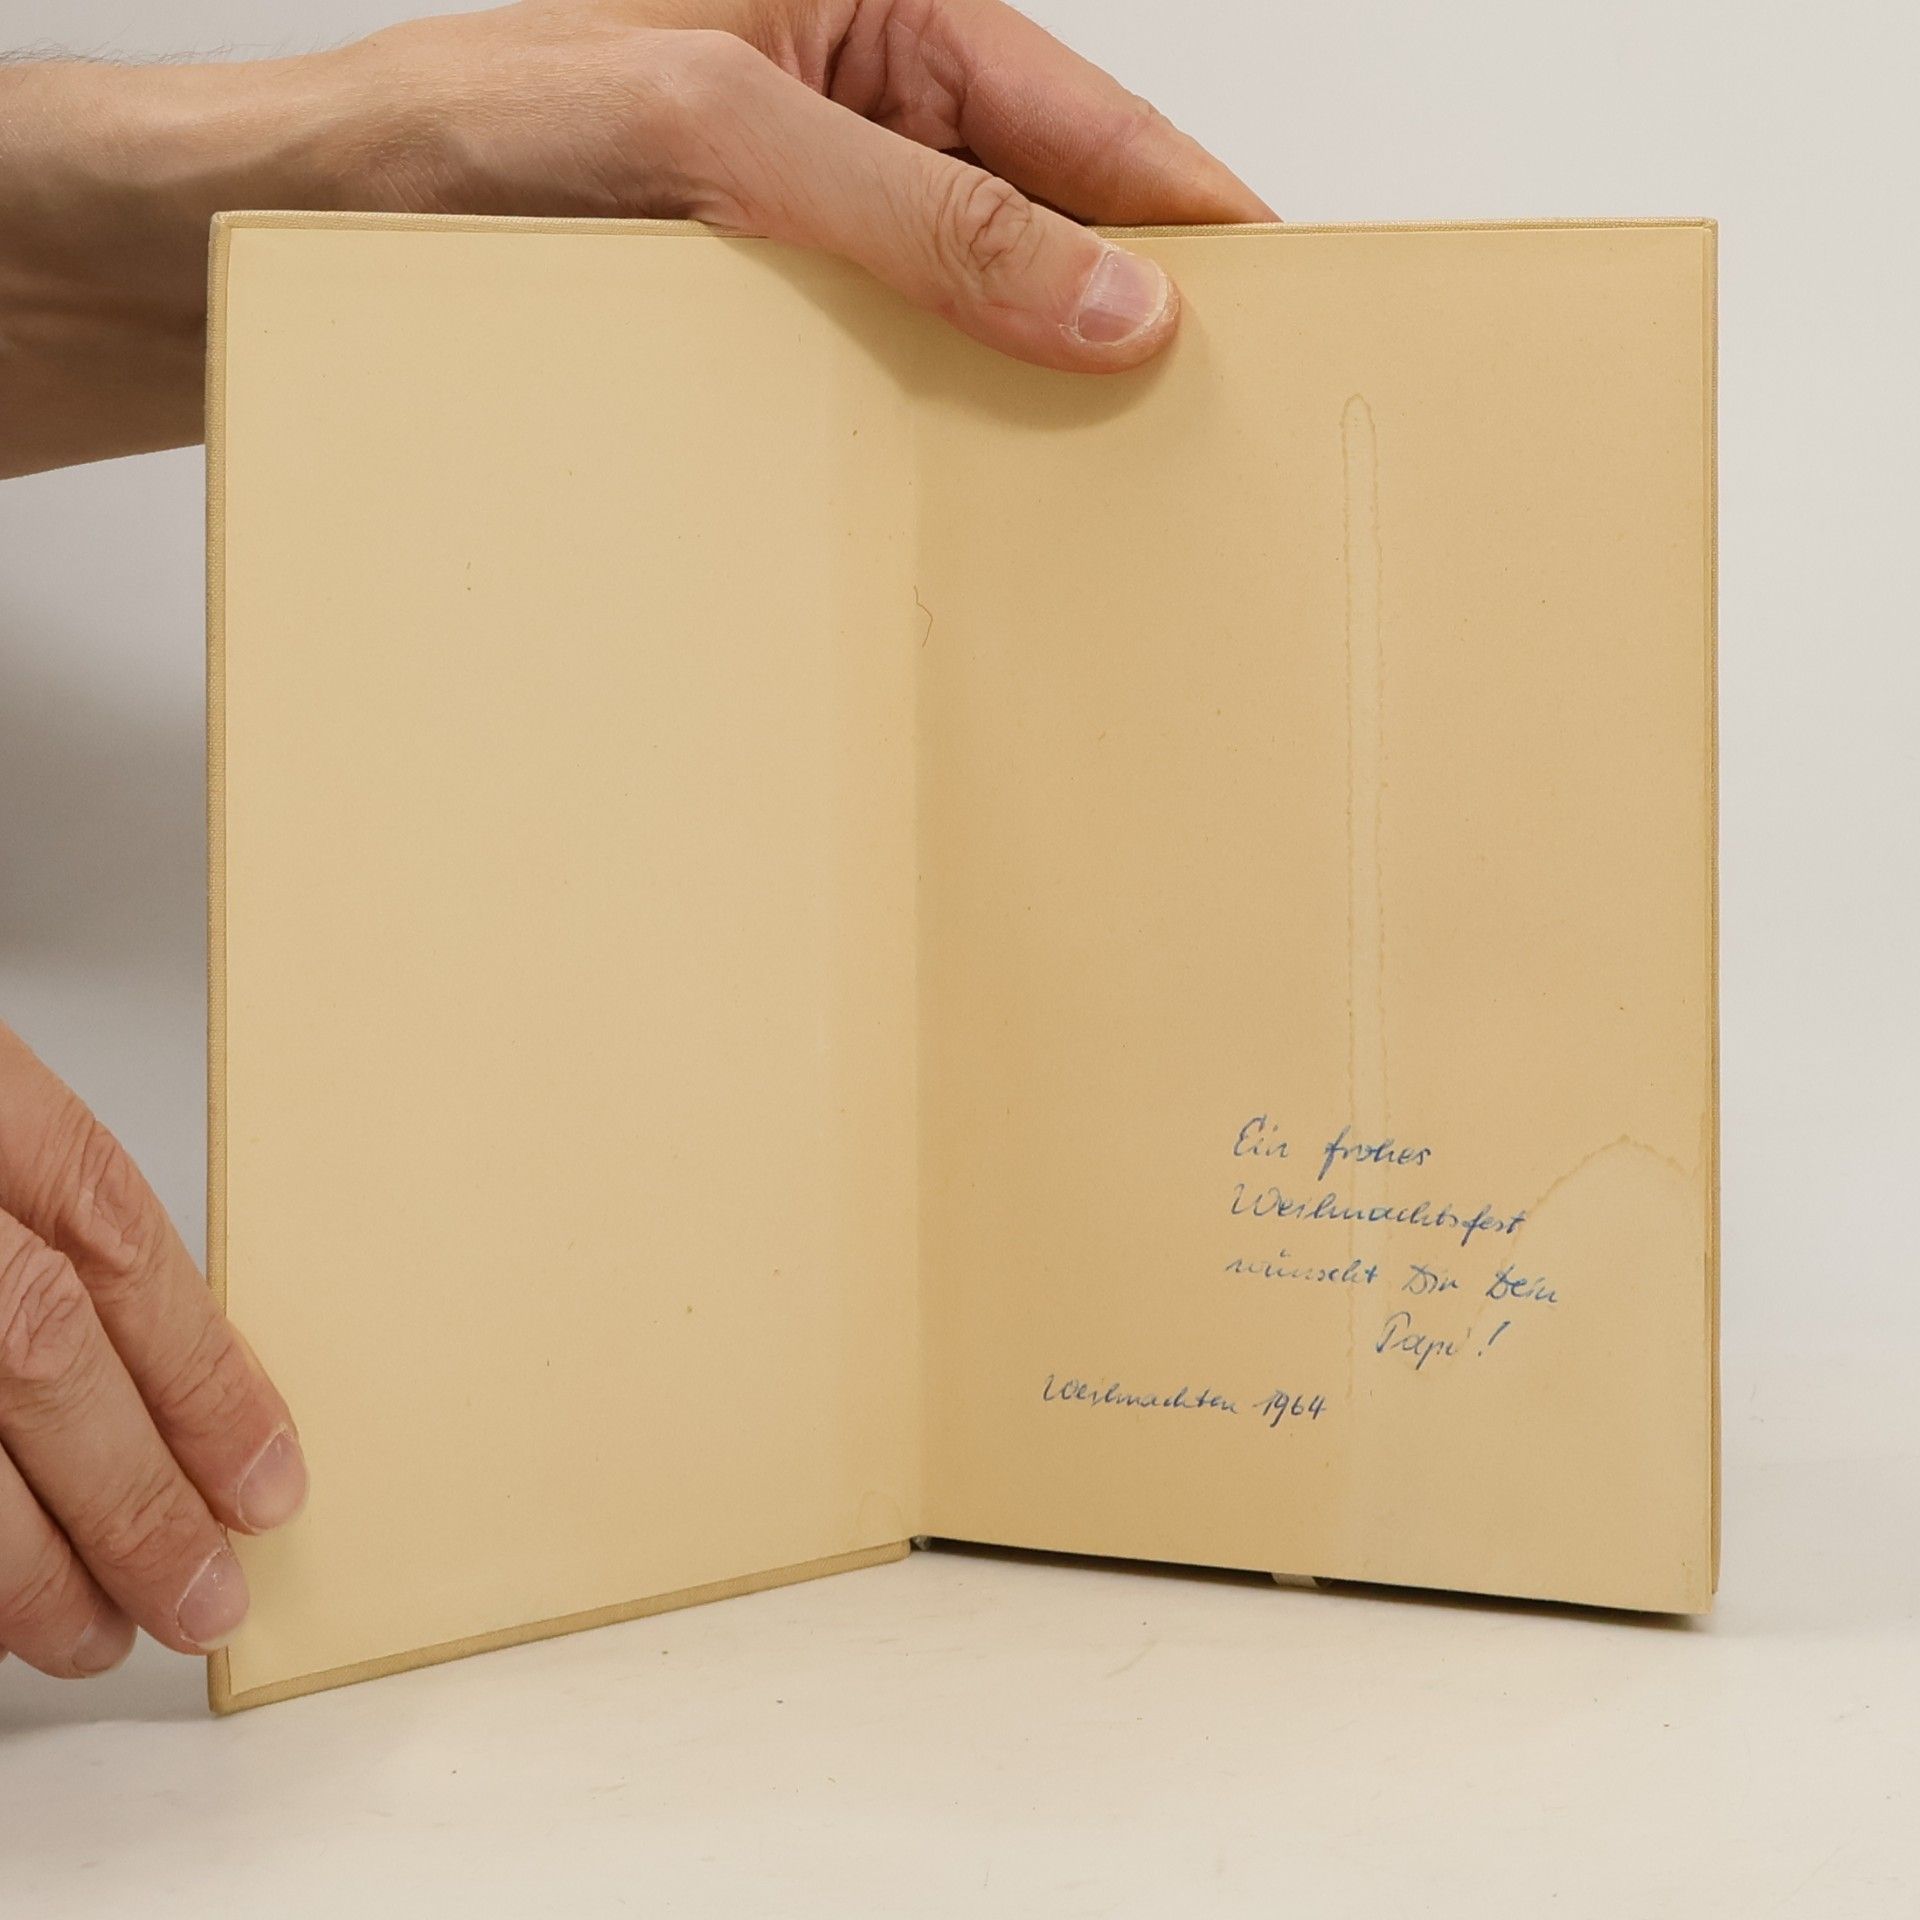 Ein frohes
Weihnachtsfest
wünscht Dir Dein
Papi!
Weihnachten 1964